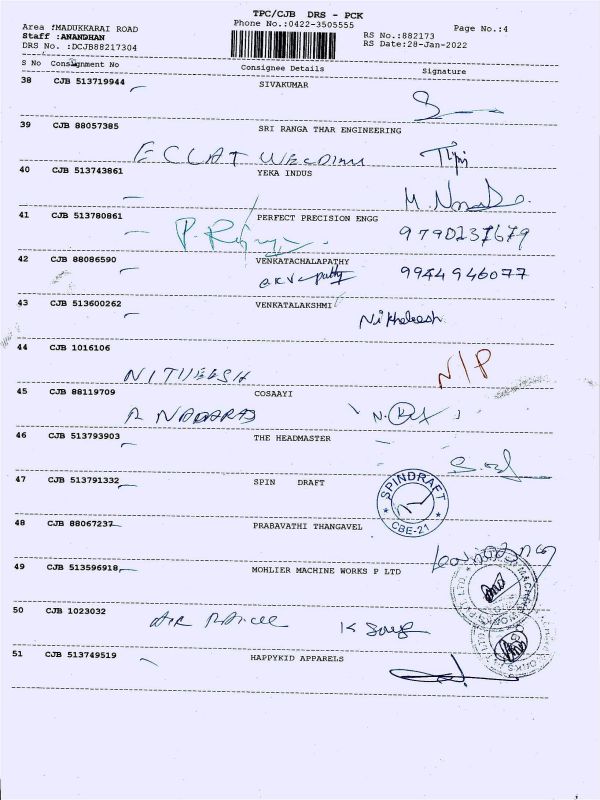 TPC/CJB DRS - PCK
Area :MADUKKARAI ROAD
Phone No.:0422-3505555
Page No.:4
Staff :ANANDHAN
RS No.:882173
DRS No. :DCJB88217304
RS Date:28-Jan-2022
S No Consignment No Consignee Details Signature
38 CJB 513719944 SIVAKUMAR
39 CJB 88057385 SRI RANGA THAR ENGINEERING
ECLAT
40 CJB 513743861 YEKA INDUS
41 CJB 513780861 PERFECT PRECISION ENGG
9790237679
42 CJB 88086590 VENKATACHALAPATHY
9944946077
43 CJB 513600262 VENKATALAKSHMI
44 CJB 1016106
N/P
NITHEESH
45 CJB 88119709 COSAAYI
46 CJB 513793903 THE HEADMASTER
47 CJB 513791332 SPIN DRAFT
SPINDRAFT
CBE-21
48 CJB 88067237 PRABAVATHI THANGAVEL
49 CJB 513596918 MOHLIER MACHINE WORKS P LTD
50 CJB 1023032
51 CJB 513749519 HAPPYKID APPARELS